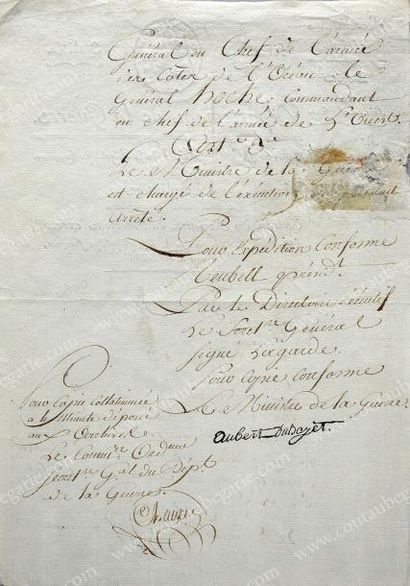 Général en Chef de l'armée
des Côtes de l'Océan le
Général Hoche Commandant
en chef de l'armée de l'Ouest.
Le Ministre de la Guerre
est chargé de l'exécution du présent
arrêté.
Pour Expédition Conforme
Reubell présidt.
Par le Directoire Exécutif
Le Secrétre Général
signé Lagarde.
Pour Copie Conforme
Le Ministre de la Guerre.
Aubert Dubayet.
Pour Copie Collationnée
à la Minute déposée
aux Archives.
Le Commre Ordre
Secretre Gal du Dépt
de la Guerre.